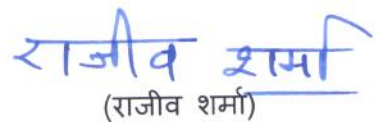 राजीव शर्मा
(राजीव शर्मा)